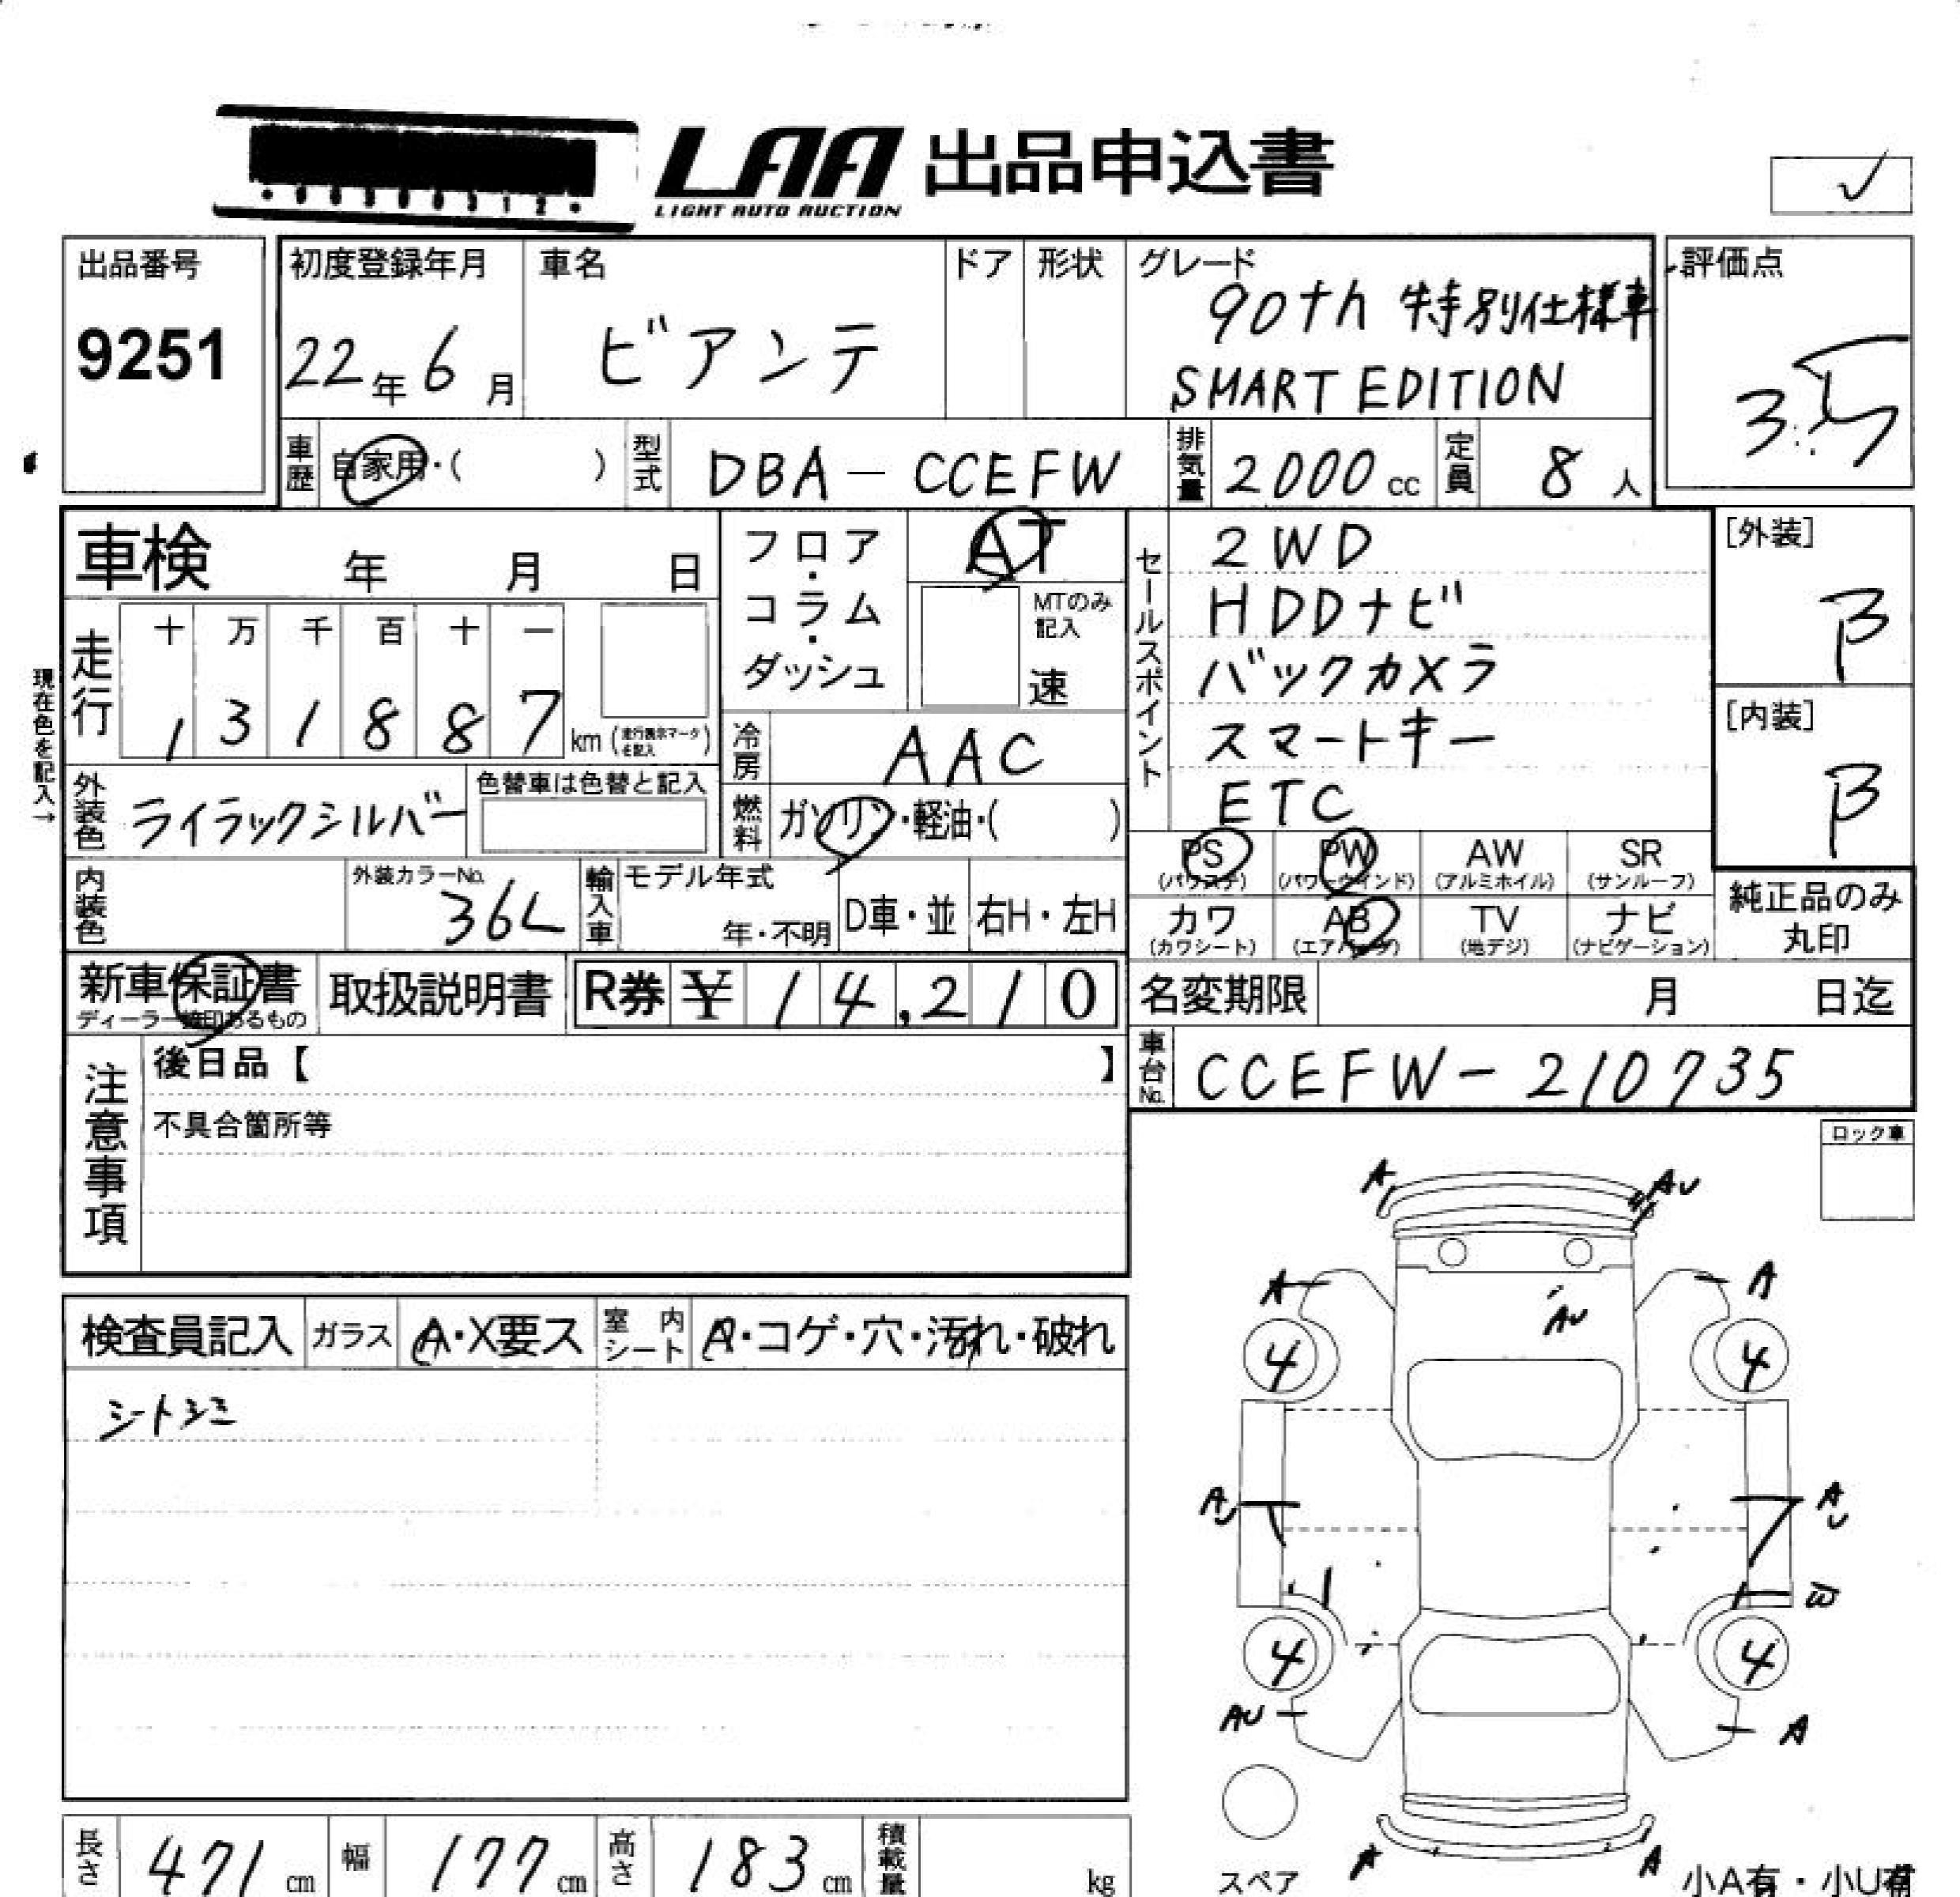 LAA 出品申込書
LIGHT AUTO AUCTION
✓
出品番号
9251
初度登録年月
22年6月
車名
ビアンテ
ドア
形状
グレード
90th 特別仕様車
SMART EDITION
評価点
3.5
車歴
自家用・( )
型式
DBA-CCEFW
排気量
2000cc
定員
8人
車検 年 月 日
フロア・コラム・ダッシュ
AT
MTのみ記入
速
セールスポイント
2WD
HDDナビ
バックカメラ
スマートキー
ETC
[外装]
B
[内装]
B
現在色を記入→
走行
十 万 千 百 十 一
1 3 1 8 8 7 km (走行表示マークを記入)
冷房
AAC
外装色
ライラックシルバー
色替車は色替と記入
燃料
ガソリン・軽油・( )
PS (パワステ)
PW (パワーウインド)
AW (アルミホイル)
SR (サンルーフ)
カワ (カワシート)
AB (エアバッグ)
TV (地デジ)
ナビ (ナビゲーション)
純正品のみ丸印
内装色
外装カラーNo.
36L
輸入車
モデル年式
年・不明
D車・並
右H・左H
新車保証書
ディーラー捺印あるもの
取扱説明書
R券 ¥ 14,210
名変期限 月 日迄
車台No.
CCEFW-210735
注意事項
後日品【 】
不具合箇所等
ロック車
検査員記入
ガラス
A・X要ス
室内シート
A・コゲ・穴・汚れ・破れ
シートシミ
A
AU
A
A
AU
4
4
AU
AU
W
4
4
AU
A
A
A
スペア
小A有・小U有
長さ
471cm
幅
177cm
高さ
183cm
積載量
kg